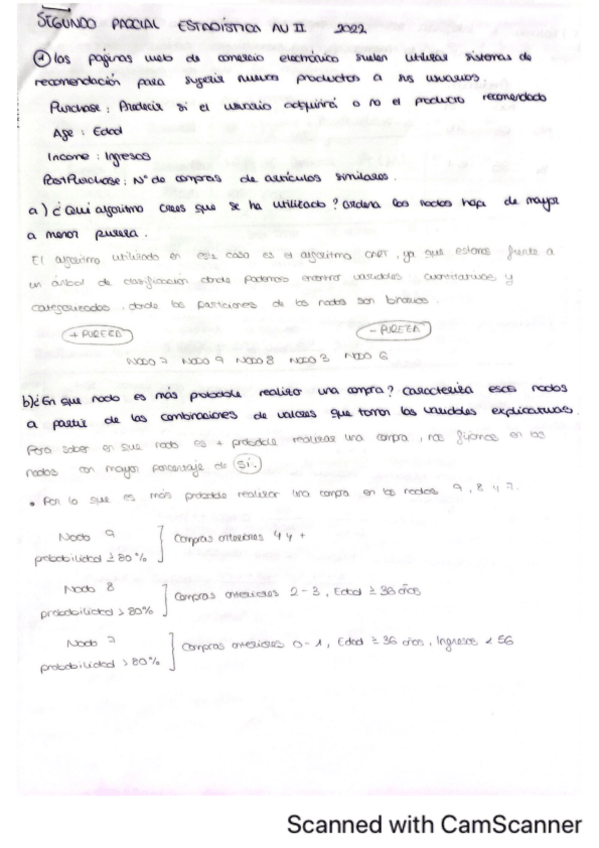 SEGUNDO PARCIAL ESTADÍSTICA AV II 2022
① Las páginas web de comercio electrónico suelen utilizar sistemas de
recomendación para sugerir nuevos productos a sus usuarios.
Purchase: Predecir si el usuario adquirirá o no el producto recomendado
Age: Edad
Income: Ingresos
PostPurchase: Nº de compras de artículos similares.
a) ¿Qué algoritmo crees que se ha utilizado? ordena los nodos hoja de mayor
a menor pureza.
El algoritmo utilizado en este caso es el algoritmo CART, ya que estamos frente a
un árbol de clasificación donde podemos encontrar variables cuantitativas y
categorizadas, donde las particiones de los nodos son binarias.
+ PUREZA - PUREZA
NODO 7 NODO 9 NODO 8 NODO 3 NODO 6
b) ¿En que nodo es más probable realizar una compra? Caracteriza esos nodos
a partir de las combinaciones de valores que toman las variables explicativas.
Para saber en que nodo es + probable realizar una compra, nos fijamos en los
nodos con mayor porcentaje de Sí.
• Por lo que es más probable realizar una compra en los nodos 9, 8 y 7.
Nodo 9
probabilidad ≥ 80% ] Compras anteriores 4 y +
Nodo 8
probabilidad > 80% ] Compras anteriores 2-3, Edad ≥ 36 años
Nodo 7
probabilidad > 80% ] Compras anteriores 0-1, Edad ≥ 36 años, Ingresos < 56
Scanned with CamScanner